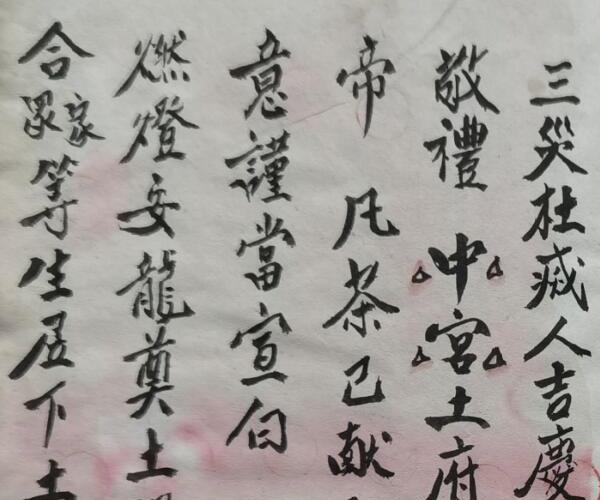 三災杜人吉慶
敬禮 中宮土府
帝 凡茶已献
意謹當宣白
燃燈安龍奠土
合家眾等生居下土